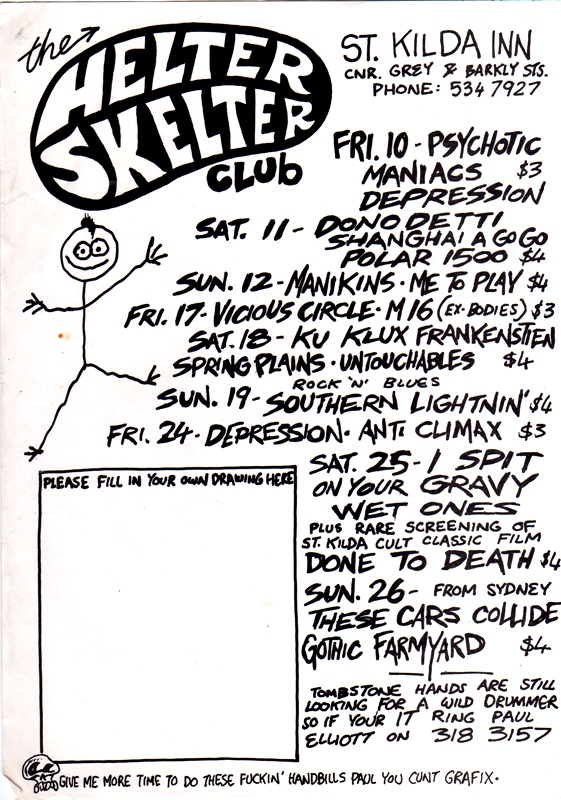 the
HELTER
SKELTER
CLUB
ST. KILDA INN
CNR. GREY & BARKLY STS.
PHONE: 534 7927
FRI. 10 - PSYCHOTIC
MANIACS $3
DEPRESSION
SAT. 11 - DONO DETTI
SHANGHAI A GO GO
POLAR 1500 $4
SUN. 12 - MANIKINS · ME TO PLAY $4
FRI. 17 - VICIOUS CIRCLE · M16 (EX-BODIES) $3
SAT. 18 - KU KLUX FRANKENSTIEN
SPRING PLAINS · UNTOUCHABLES $4
ROCK 'N' BLUES
SUN. 19 - SOUTHERN LIGHTNIN' $4
FRI. 24 - DEPRESSION · ANTI CLIMAX $3
SAT. 25 - I SPIT
ON YOUR GRAVY
WET ONES
PLUS RARE SCREENING OF
ST. KILDA CULT CLASSIC FILM
DONE TO DEATH $4
SUN. 26 - FROM SYDNEY
THESE CARS COLLIDE
GOTHIC FARMYARD $4
TOMBSTONE HANDS ARE STILL
LOOKING FOR A WILD DRUMMER
SO IF YOUR IT RING PAUL
ELLIOTT ON 318 3157
PLEASE FILL IN YOUR OWN DRAWING HERE
GIVE ME MORE TIME TO DO THESE FUCKIN' HANDBILLS PAUL YOU CUNT GRAFIX.